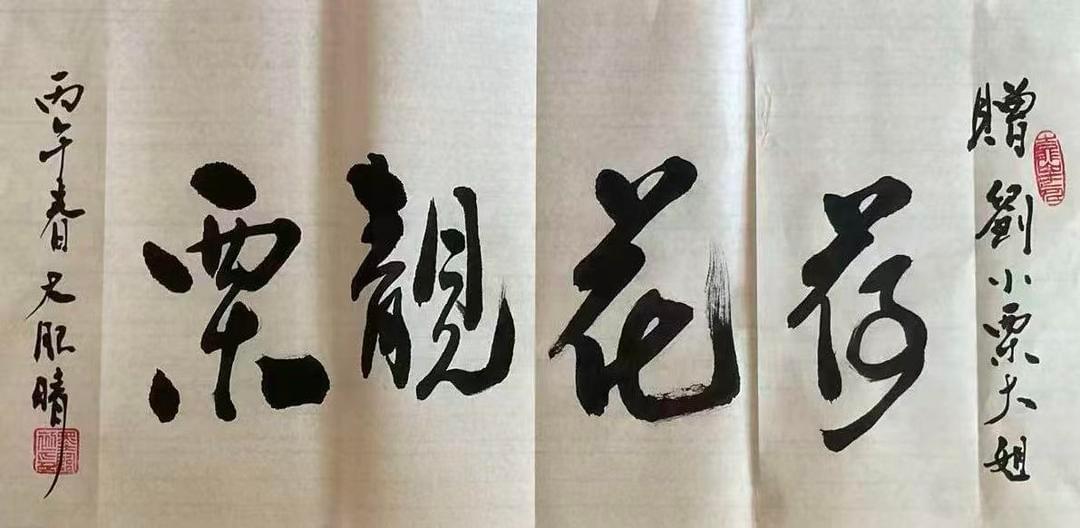 贈劉小栗大姐
荷花靚栗
丙午春尤肥晴